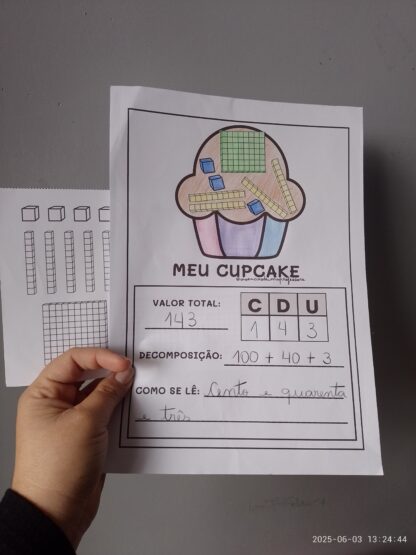 MEU CUPCAKE
VALOR TOTAL:
143
C D U
1 4 3
DECOMPOSIÇÃO: 100 + 40 + 3
COMO SE LÊ: Cento e quarenta
e três
2025-06-03 13:24:44